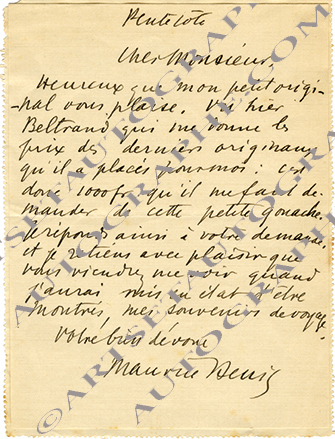 Pentecôte
Cher Monsieur,
Heureux que mon petit origi-
-nal vous plaise. Vu hier
Beltrand qui me donne les
prix des derniers originaux
qu'il a placés pour moi : c'est
donc 1000 fr qu'il me faut de-
mander de cette petite gouache.
Je réponds ainsi à votre demande
et je retiens avec plaisir que
vous viendrez me voir quand
j'aurai mis en état d'être
montrés, mes souvenirs de voyage.
Votre bien dévoué
Maurice Denis